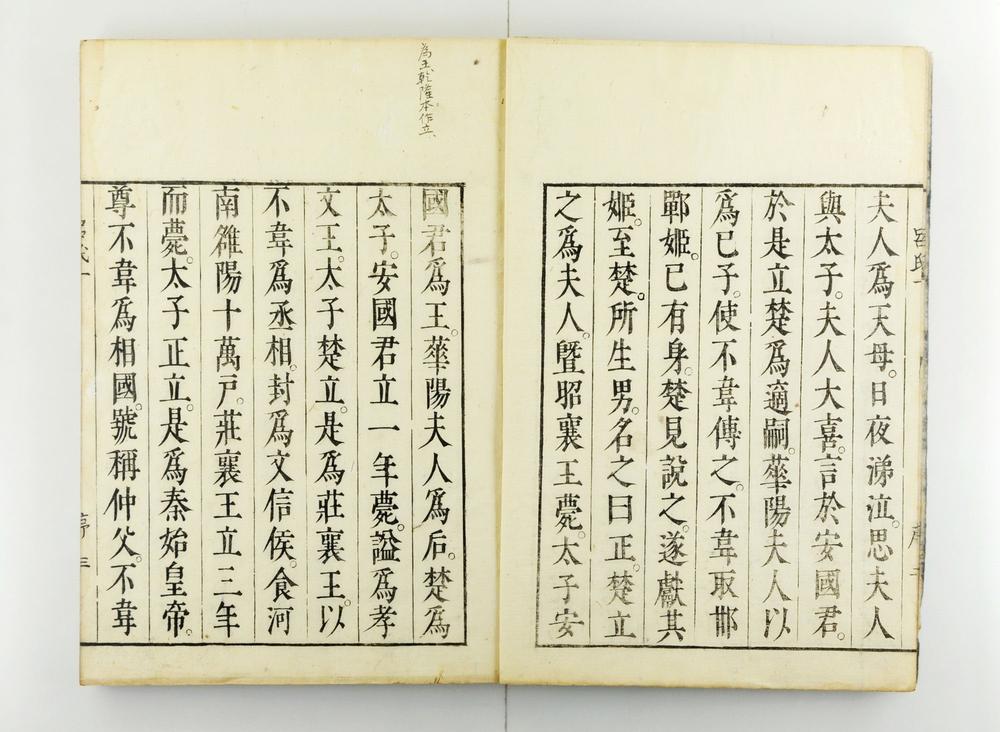 夫人爲天母。日夜涕泣。思夫人
與太子。夫人大喜。言於安國君。
於是立楚爲適嗣。華陽夫人以
爲已子。使不韋傅之。不韋取邯
鄲姬。已有身。楚見說之。遂獻其
姬。至楚。所生男。名之曰正。楚立
之爲夫人。曁昭襄王薨。太子安
爲王乾隆本作立
國君爲王。華陽夫人爲后。楚爲
太子。安國君立一年薨。謚爲孝
文王。太子楚立。是爲莊襄王。以
不韋爲丞相。封爲文信侯。食河
南雒陽十萬戸。莊襄王立三年
而薨。太子正立。是爲秦始皇帝。
尊不韋爲相國。號稱仲父。不韋